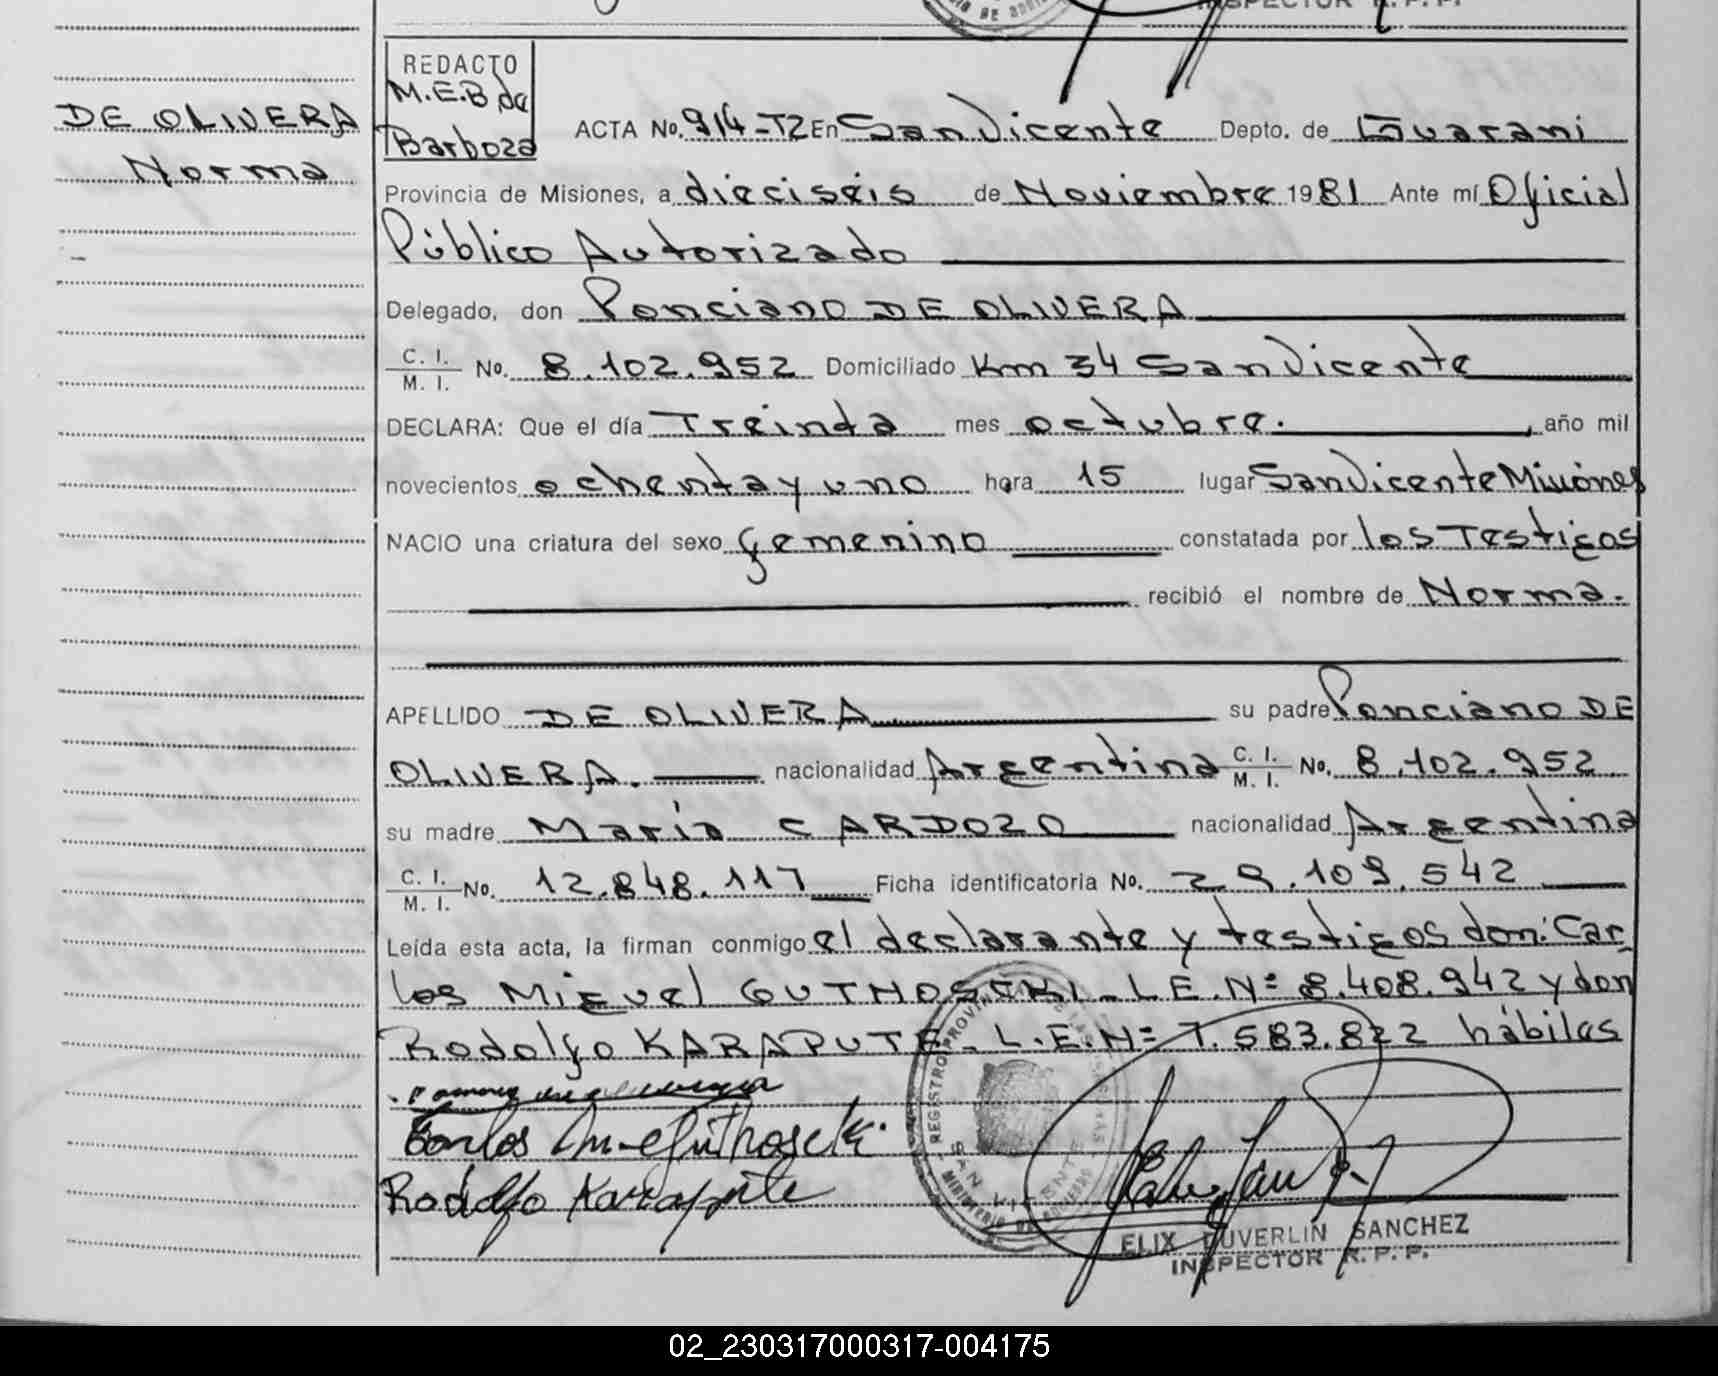 INSPECTOR R. P. P.
REDACTO
M.E.B de
Barboza
DE OLIVERA
Norma
ACTA No. 914-T2 En San Vicente Depto. de Guaraní
Provincia de Misiones, a dieciséis de Noviembre 1981 Ante mí Oficial
Público Autorizado
Delegado, don Ponciano DE OLIVERA
C. I. / M. I. No. 8.102.952 Domiciliado Km 34 San Vicente
DECLARA: Que el día Treinta mes octubre. , año mil
novecientos ochenta y uno hora 15 lugar San Vicente Misiones
NACIO una criatura del sexo femenino constatada por los Testigos
recibió el nombre de Norma.
APELLIDO DE OLIVERA su padre Ponciano DE
OLIVERA. nacionalidad Argentina C. I. / M. I. No. 8.102.952
su madre María CARDOZO nacionalidad Argentina
C. I. / M. I. No. 12.848.117 Ficha identificatoria No. 29.109.542
Leída esta acta, la firman conmigo el declarante y testigos don: Car
los Miguel GUTHOSCKI - L.E.Nº 8.408.942 y don
Rodolfo KARAPUTE - L.E.Nº 7.583.822 hábiles
Rodolfo Karapute
REGISTRO PROVINCIAL DE LAS PERSONAS
SAN VICENTE
MINISTERIO DE GOBIERNO
ELIX DUVERLIN SANCHEZ
INSPECTOR R. P. P.
02_230317000317-004175